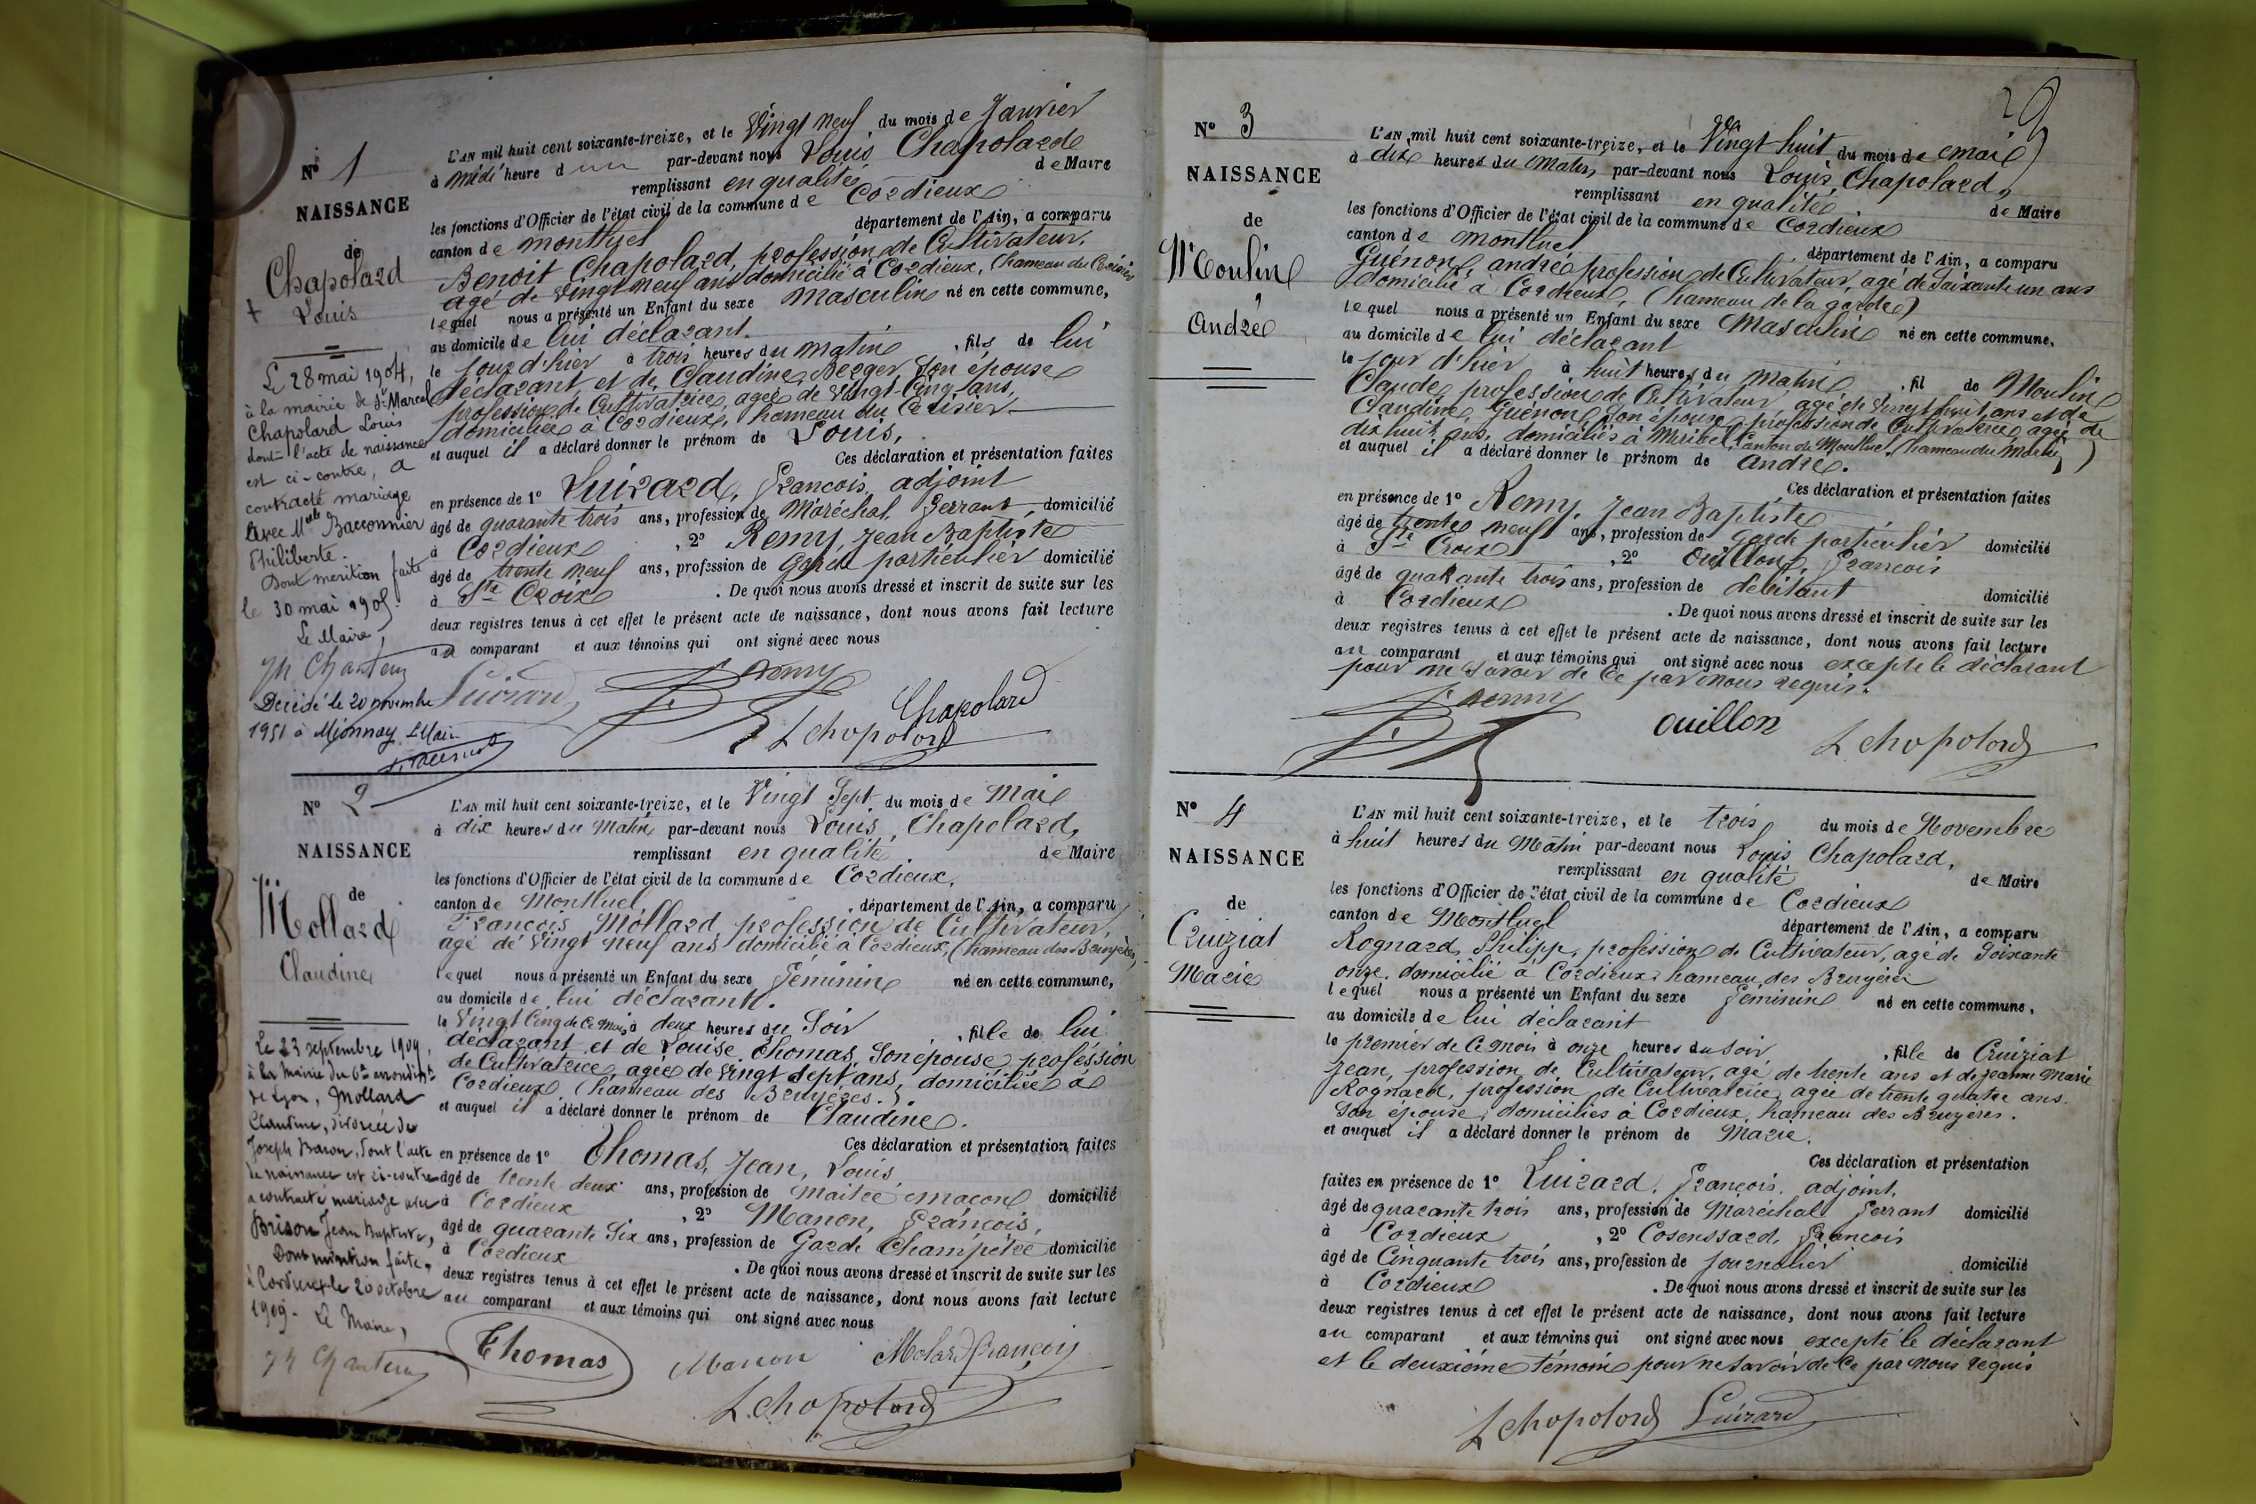 Nº 1
NAISSANCE
de
Chapolard
Louis
Le 28 mai 1904,
à la mairie de St Marcel
Chapolard Louis
dont l'acte de naissance
est ci-contre, a
contracté mariage
avec Mlle Bacconnier
Philiberte.
Dont mention faite
le 30 mai 1905.
Le Maire,
Décédé le 20 novembre
1951 à Mionnay. Le Maire
L'AN mil huit cent soixante-treize, et le Vingt neuf du mois de Janvier
à midi heure d un par-devant nous Louis Chapolard
remplissant en qualité de Maire
les fonctions d'Officier de l'état civil de la commune de Cordieux
canton de Montluel département de l'Ain, a comparu
Benoit Chapolard, profession de Cultivateur,
agé de Vingt neuf ans domicilié à Cordieux, (hameau du Cerisier
lequel nous a présenté un Enfant du sexe Masculin né en cette commune,
au domicile de lui déclarant.
le jour d'hier à trois heures du matin, fils de lui
déclarant et de Claudine Berger son épouse
profession de Cultivatrice, agée de Vingt-Cinq ans,
domiciliée à Cordieux, hameau du Cerisier
et auquel il a déclaré donner le prénom de Louis,
Ces déclaration et présentation faites
en présence de 1º Luizard, François, adjoint
âgé de quarante trois ans, profession de Maréchal Ferrant, domicilié
à Cordieux, 2º Remy, Jean Baptiste
âgé de trente neuf ans, profession de Garde particulier domicilié
à Ste Croix. De quoi nous avons dressé et inscrit de suite sur les
deux registres tenus à cet effet le présent acte de naissance, dont nous avons fait lecture
au comparant et aux témoins qui ont signé avec nous
Luizard Remy Chapolard
L Chapolard
Nº 2
NAISSANCE
de
Mollard
Claudine
Le 23 septembre 1909,
à la Mairie du 6e arrondisst
de Lyon, Mollard
Claudine, divorcée de
Joseph Baron, dont l'acte
de naissance est ci-contre
a contracté mariage avec
Brison Jean Baptiste,
Dont mention faite,
à Cordieux le 20 octobre
1909. Le Maire,
L'AN mil huit cent soixante-treize, et le Vingt Sept du mois de Mai
à dix heures du Matin par-devant nous Louis, Chapolard,
remplissant en qualité de Maire
les fonctions d'Officier de l'état civil de la commune de Cordieux,
canton de Montluel, département de l'Ain, a comparu
François Mollard, profession de Cultivateur,
agé de Vingt neuf ans domicilié à Cordieux, (hameau des Bruyères,
lequel nous a présenté un Enfant du sexe Féminin né en cette commune,
au domicile de lui déclarant.
le Vingt Cinq de Ce Mois à deux heures du Soir, fille de lui
déclarant et de Louise Thomas, Son épouse, profession
de Cultivatrice, agée de Vingt Sept ans, domiciliée à
Cordieux, (hameau des Bruyères.)
et auquel il a déclaré donner le prénom de Claudine.
Ces déclaration et présentation faites
en présence de 1º Thomas, Jean, Louis,
âgé de trente deux ans, profession de Maître maçon domicilié
à Cordieux, 2º Manon, François,
âgé de quarante Six ans, profession de Garde Champêtre domicilié
à Cordieux. De quoi nous avons dressé et inscrit de suite sur les
deux registres tenus à cet effet le présent acte de naissance, dont nous avons fait lecture
au comparant et aux témoins qui ont signé avec nous
Thomas Manon Molard François
L. Chapolard
29
Nº 3
NAISSANCE
de
Moulin
André
L'AN mil huit cent soixante-treize, et le Vingt-huit du mois de Mai
à dix heures du Matin par-devant nous Louis, Chapolard,
remplissant en qualité de Maire
les fonctions d'Officier de l'état civil de la commune de Cordieux
canton de Montluel département de l'Ain, a comparu
Guénon, andré profession de Cultivateur, agé de Soixante un ans
domicilié à Cordieux, (hameau de la garde)
lequel nous a présenté un Enfant du sexe Masculin né en cette commune,
au domicile de lui déclarant
le jour d'hier à huit heures du Matin, fil de Moulin
Claude, profession de Cultivateur agé de Vingt huit ans et de
Claudine Guénon, son épouse, profession de Cultivatrice, agée de
dix huit ans, domiciliés à Miribel, Canton de Montluel, (hameau du Mas)
et auquel il a déclaré donner le prénom de andré.
Ces déclaration et présentation faites
en présence de 1º Remy, Jean Baptiste
âgé de trente neuf ans, profession de Garde particulier domicilié
à Ste Croix, 2º Ouillon, François
âgé de quarante trois ans, profession de débitant domicilié
à Cordieux. De quoi nous avons dressé et inscrit de suite sur les
deux registres tenus à cet effet le présent acte de naissance, dont nous avons fait lecture
au comparant et aux témoins qui ont signé avec nous excepté le déclarant
pour ne Savoir de Ce par nous requis.
Remy Ouillon L Chapolard
Nº 4
NAISSANCE
de
Cruiziat
Marie
L'AN mil huit cent soixante-treize, et le trois du mois de Novembre
à huit heures du Matin par-devant nous Louis Chapolard,
remplissant en qualité de Maire
les fonctions d'Officier de l'état civil de la commune de Cordieux
canton de Montluel département de l'Ain, a comparu
Rognard, Philipp, profession de Cultivateur, agé de Soixante
onze, domicilié à Cordieux, hameau des Bruyères
lequel nous a présenté un Enfant du sexe Féminin né en cette commune,
au domicile de lui déclarant
le premier de Ce Mois à onze heures du Soir, fille de Cruiziat
Jean, profession de Cultivateur, agé de trente ans et de Jeanne Marie
Rognard, profession de Cultivatrice, agée de trente quatre ans.
Son épouse, domiciliés à Cordieux, hameau des Bruyères.
et auquel il a déclaré donner le prénom de Marie.
Ces déclaration et présentation
faites en présence de 1º Luizard, François, adjoint,
âgé de quarante trois ans, profession de Maréchal Ferrant domicilié
à Cordieux, 2º Cosenssard, François
âgé de Cinquante trois ans, profession de journalier domicilié
à Cordieux. De quoi nous avons dressé et inscrit de suite sur les
deux registres tenus à cet effet le présent acte de naissance, dont nous avons fait lecture
au comparant et aux témoins qui ont signé avec nous excepté le déclarant
et le deuxième témoin pour ne Savoir de Ce par nous requis
L Chapolard Luizard